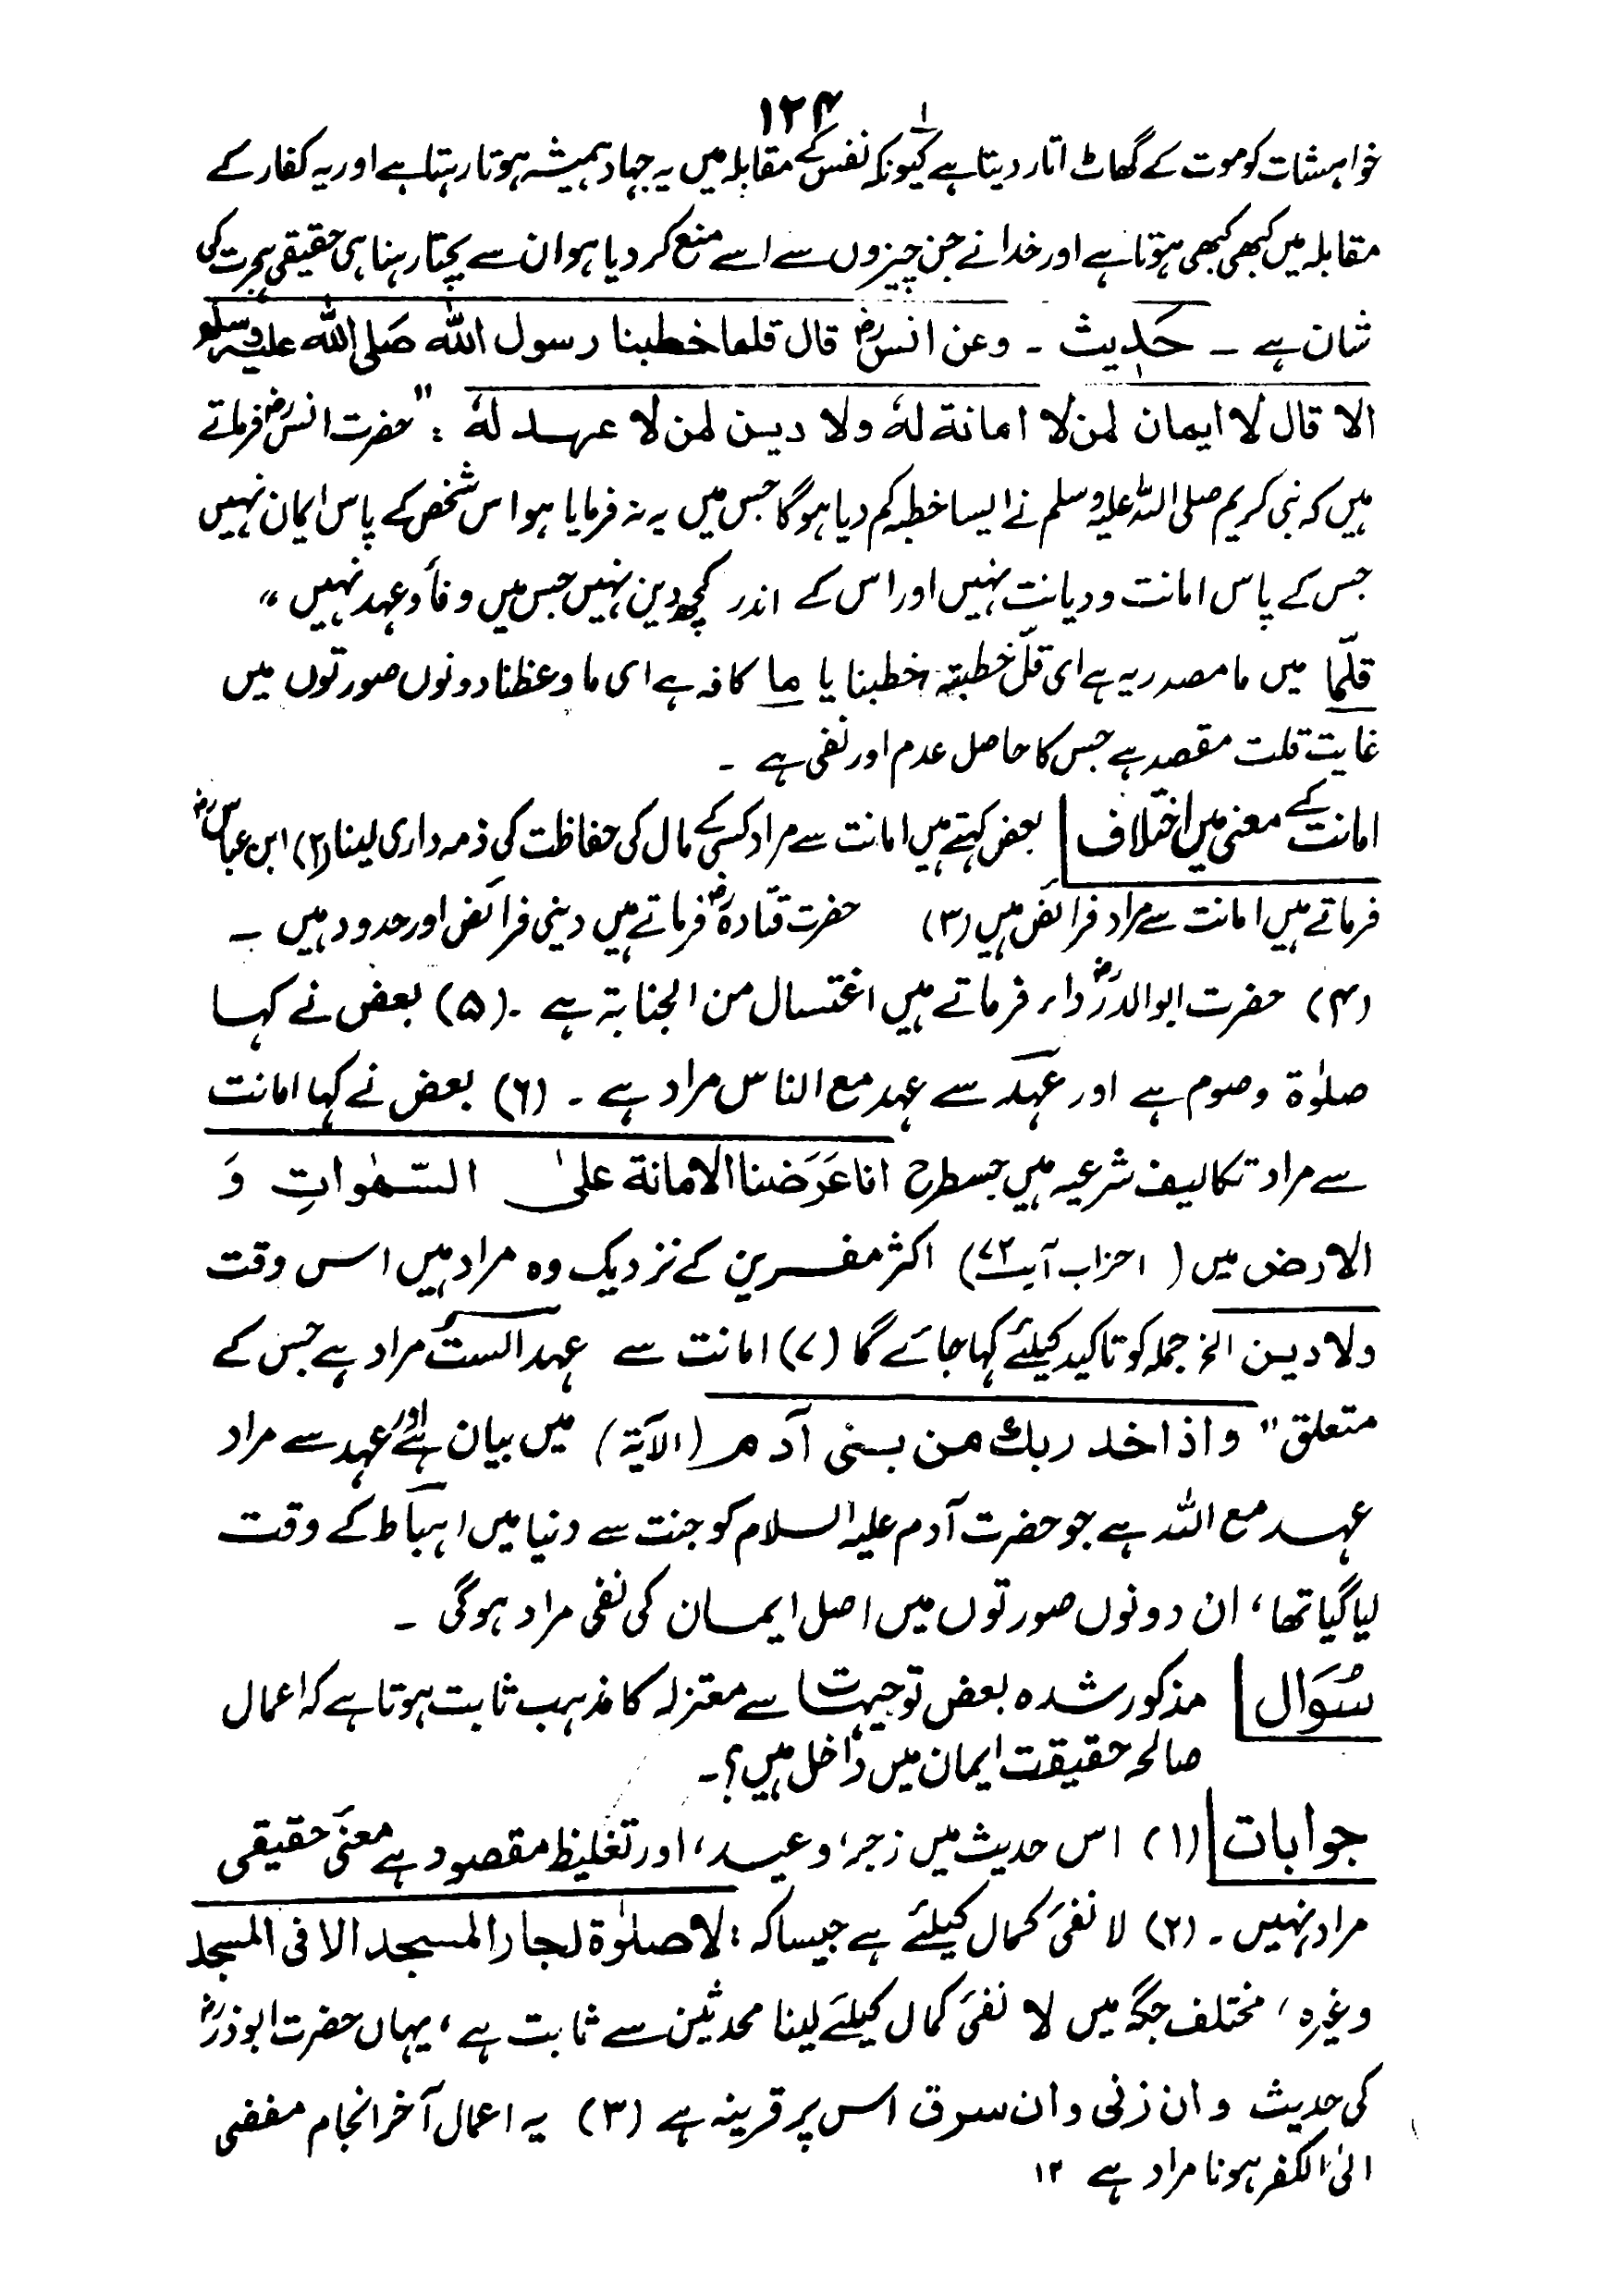 ۱۲۴
خواہشات کو موت کے گھاٹ اتار دیتا ہے کیونکہ نفس کے مقابلہ میں یہ جہاد ہمیشہ ہوتا رہتا ہے اور یہ کفار کے
مقابلہ میں کبھی کبھی ہوتا ہے اور خدا نے جن چیزوں سے اسے منع کر دیا ہو ان سے بچتا رہنا ہی حقیقی ہجرت کی
شان ہے ۔ حَدِیث ۔ وعن انسؓ قال قلما خطبنا رسول اللّٰہ صَلی اللّٰہ علیہ وسلم
الا قال لا ایمان لمن لا امانۃ لہٗ ولا دین لمن لا عہد لہٗ : " حضرت انسؓ فرماتے
ہیں کہ نبی کریم صلی اللہ علیہ وسلم نے ایسا خطبہ کم دیا ہوگا جس میں یہ نہ فرمایا ہو اس شخص کے پاس ایمان نہیں
جس کے پاس امانت ودیانت نہیں اور اس کے اندر کچھ دین نہیں جس میں وفاء عہد نہیں "
قلّما میں ما مصدریہ ہے ای قلّ خطبۃ خطبنا یا ما کافہ ہے ای ما وعظنا دونوں صورتوں میں
غایت قلت مقصد ہے جس کا حاصل عدم اور نفی ہے ۔
امانت کے معنی میں اختلاف | بعض کہتے ہیں امانت سے مراد کسی کے مال کی حفاظت کی ذمہ داری لینا (۲) ابن عباسؓ
فرماتے ہیں امانت سے مراد فرائض ہیں (۳) حضرت قتادہؓ فرماتے ہیں دینی فرائض اور حدود ہیں ۔
(۴) حضرت ابوالدرداءؓ فرماتے ہیں اغتسال من الجنابۃ ہے ۔ (۵) بعض نے کہا
صلوٰۃ وصوم ہے اور عہد سے عہد مع الناس مراد ہے ۔ (۶) بعض نے کہا امانت
سے مراد تکالیف شرعیہ ہیں جسطرح انا عَرَضنا الامانۃ علیٰ السّمٰوات وَ
الارض میں ( احزاب آیت ۷۲) اکثر مفسرین کے نزدیک وہ مراد ہیں اس وقت
ولا دین الخ جملہ کو تاکید کیلئے کہا جائے گا (۷) امانت سے عہد الست مراد ہے جس کے
متعلق " واذ اخذ ربك من بنی آدم (الآیۃ) میں بیان ہے اور عہد سے مراد
عہد مع اللہ ہے جو حضرت آدم علیہ السلام کو جنت سے دنیا میں اہباط کے وقت
لیا گیا تھا ، ان دونوں صورتوں میں اصل ایمان کی نفی مراد ہوگی ۔
سُوَال | مذکور شدہ بعض توجیہات سے معتزلہ کا مذہب ثابت ہوتا ہے کہ اعمال
صالحہ حقیقت ایمان میں داخل ہیں ؟۔
جوابات | (۱) اس حدیث میں زجر، وعید ، اور تغلیظ مقصود ہے معنیٰ حقیقی
مراد نہیں ۔ (۲) لا نفیٔ کمال کیلئے ہے جیسا کہ : لا صلوٰۃ لجار المسجد الا فی المسجد
وغیرہ ، مختلف جگہ میں لا نفیٔ کمال کیلئے لینا محدثین سے ثابت ہے ، یہاں حضرت ابوذرؓ
کی حدیث وان زنی وان سرق اس پر قرینہ ہے (۳) یہ اعمال آخر انجام مفضی
الیٰ الکفر ہونا مراد ہے ۱۲